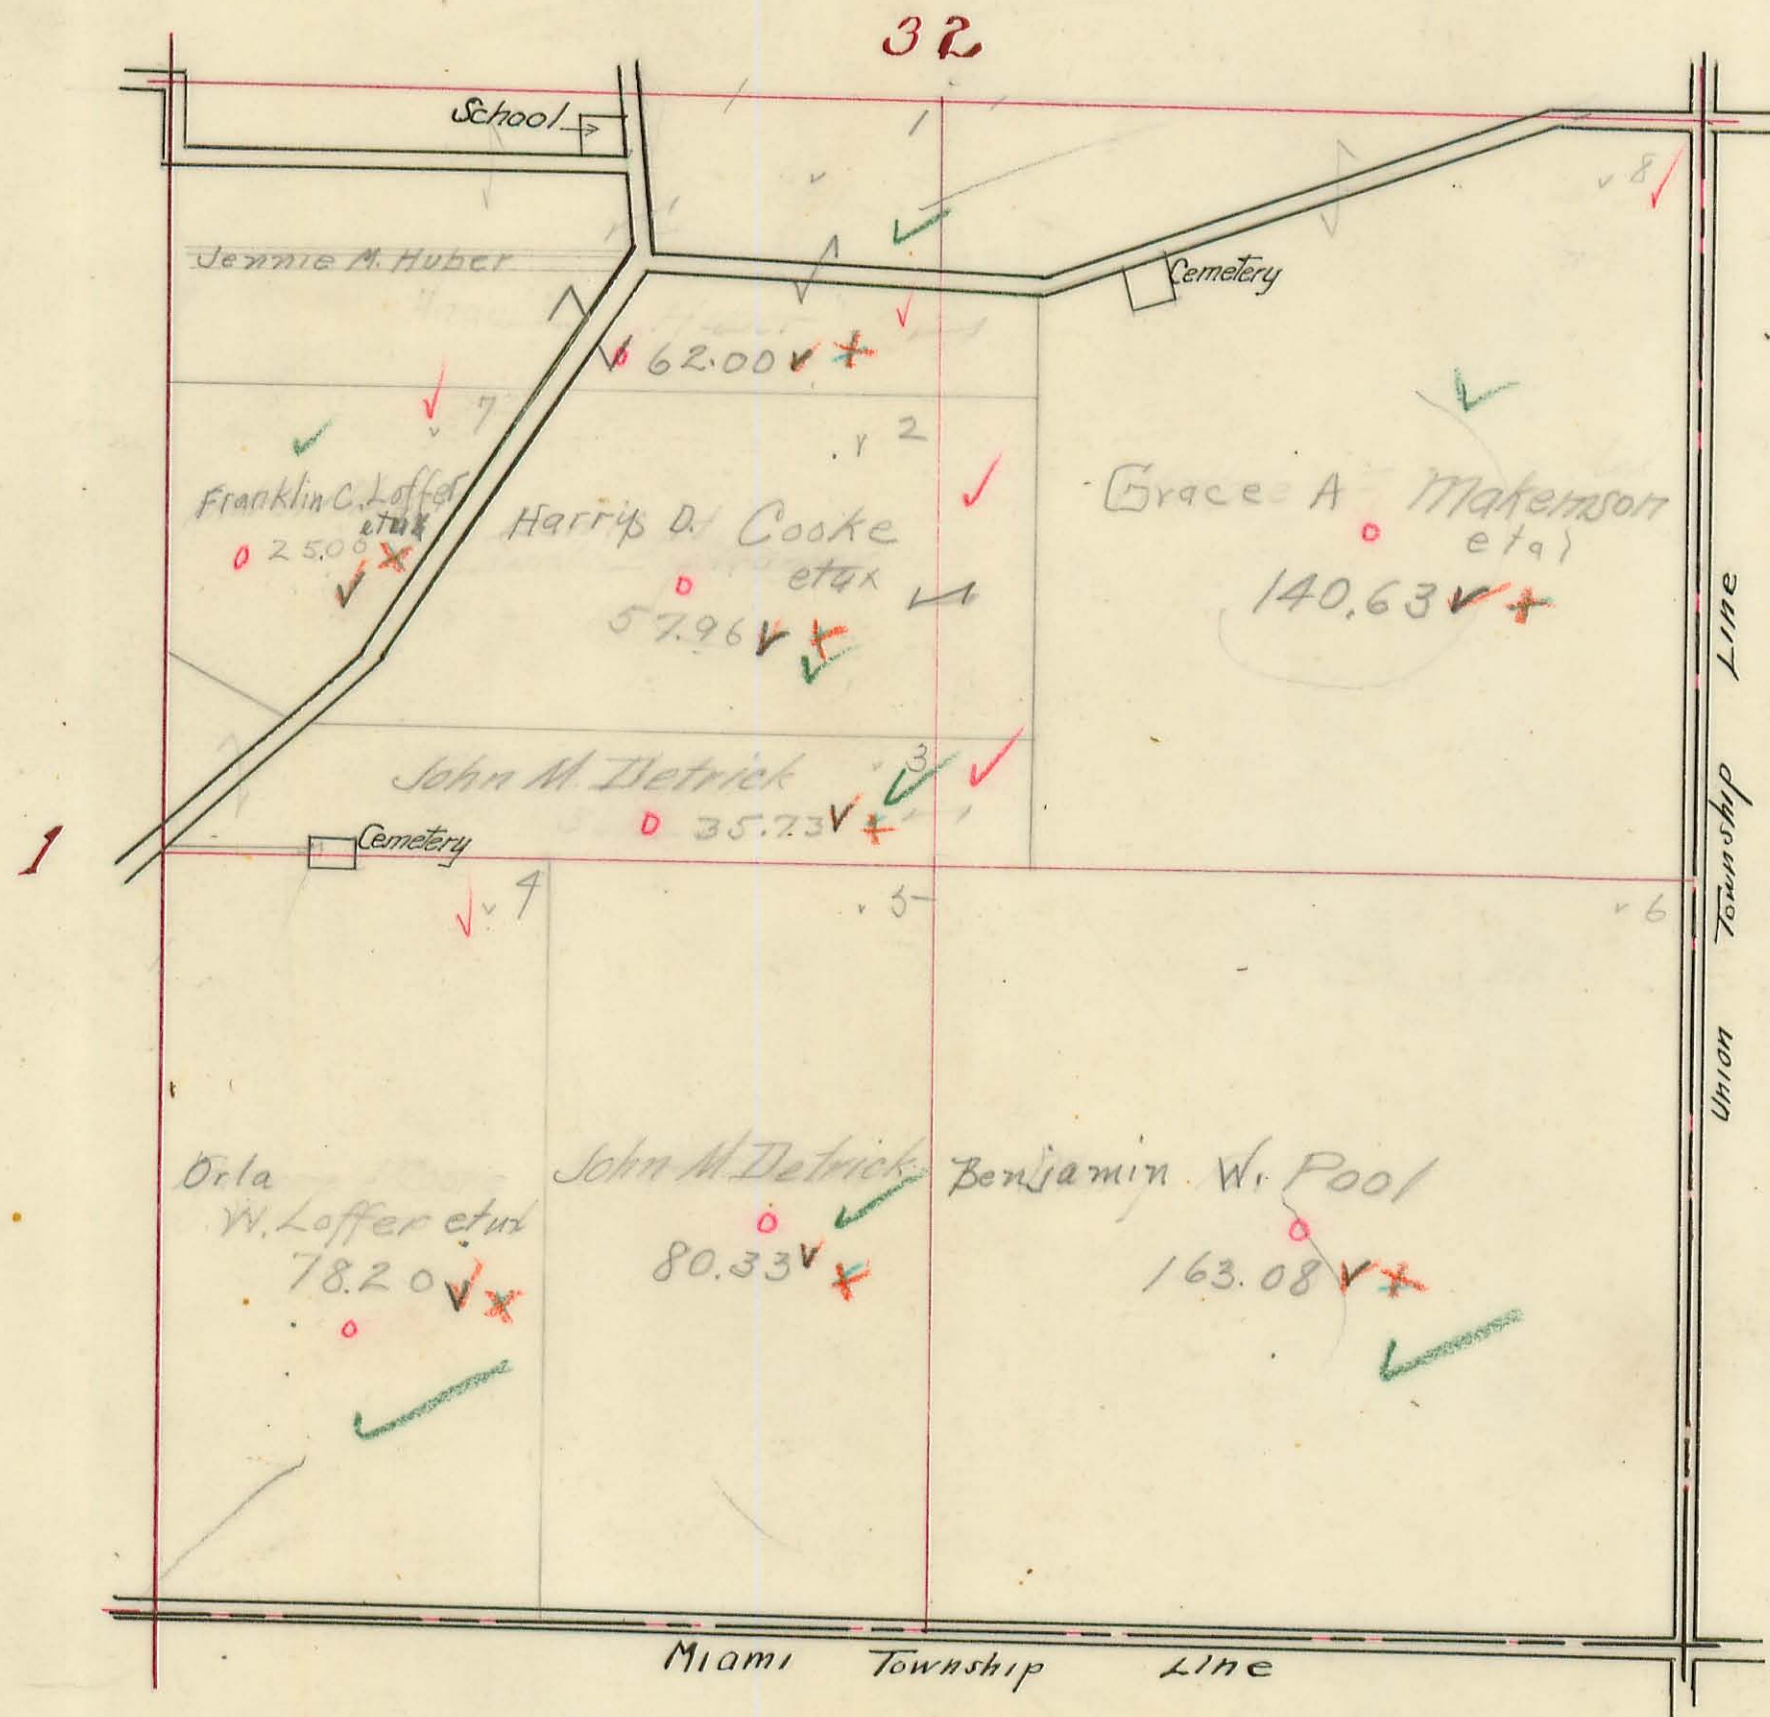 32
School
1
8
Jennie M. Huber
Cemetery
62.00
7
2
Franklin C. Loffer
etux
25.00
Harry D. Cooke
etux
57.96
Grace A Makemson
etal
140.63
John M. Detrick
3
35.73
1
Cemetery
4
5
6
Orla
W. Loffer etux
78.20
John M Detrick
80.33
Benjamin W. Pool
163.08
Union Township Line
Miami Township Line